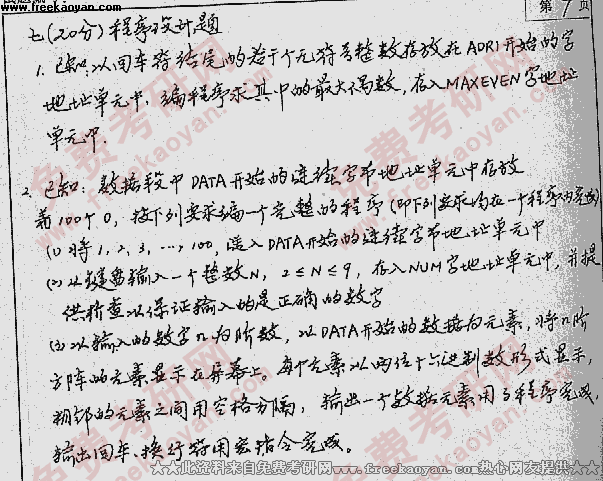 www.freekaoyan.com
第 7 页
七(20分)程序设计题
1. 已知:以回车符结尾的若干个无符号整数存放在ADR1开始的字
地址单元中, 编程序求其中的最大偶数, 存入MAXEVEN字地址
单元中.
2. 已知: 数据段中DATA开始的连续字节地址单元中存放
着100个0, 按下列要求编一个完整的程序(即下列要求均在一个程序内完成)
(1) 将1, 2, 3, …, 100, 送入DATA开始的连续字节地址单元中
(2) 从键盘输入一个整数N, 2≤N≤9, 存入NUM字地址单元中, 并提
供检查以保证输入的是正确的数字
(3) 以输入的数字n为阶数, 以DATA开始的数据为元素, 将n阶
方阵的元素显示在屏幕上。每个元素以两位十六进制数形式显示,
相邻的元素之间用空格分隔, 输出一个数据元素用子程序完成,
输出回车、换行符用宏指令完成。
免费考研网
www.freekaoyan.com
★★此资料来自免费考研网www.freekaoyan.com热心网友提供★★